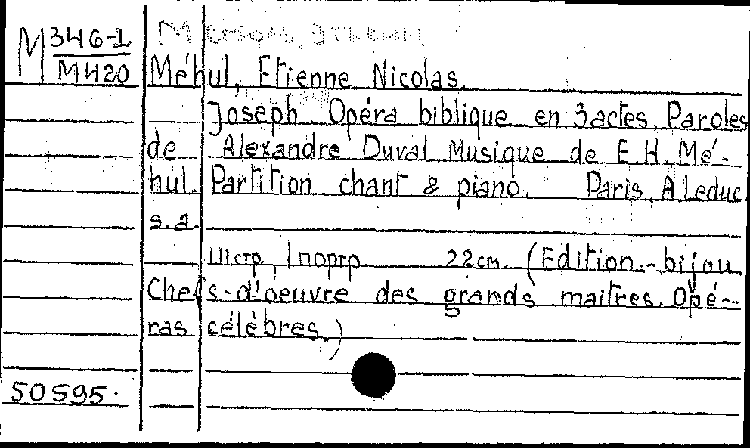 M 346-1
M420
Méhul, Etienne Nicolas.
Joseph. Opéra biblique en 3 actes. Paroles
de Alexandre Duval Musique de E. H. Mé-
hul. Partition chant & piano. Paris, A. Leduc
s.a.
111 стр, 1 портр 22 см. (Edition-bijou
Chefs-d'oeuvre des grands maitres. Opé-
ras célèbres.)
50595.